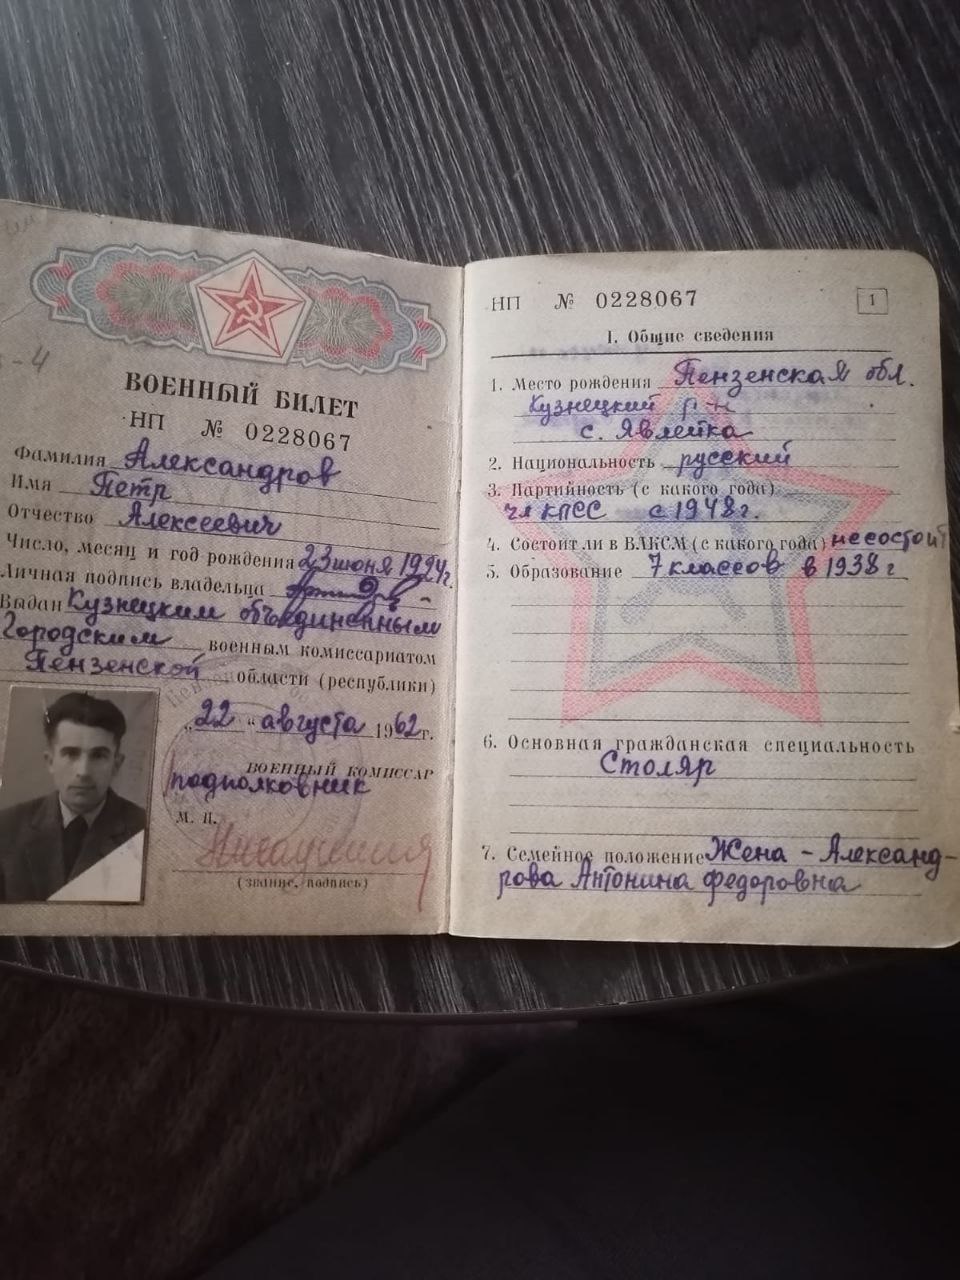 -4
ВОЕННЫЙ БИЛЕТ
НП № 0228067
Фамилия Александров
Имя Петр
Отчество Алексеевич
Число, месяц и год рождения 23 июня 1924г.
Личная подпись владельца
Выдан Кузнецким объединенным
Городским военным комиссариатом
Пензенской области (республики)
„22" августа 1962г.
ВОЕННЫЙ КОМИССАР
подполковник
М. П.
(звание, подпись)
НП № 0228067 1
I. Общие сведения
1. Место рождения Пензенская обл.
Кузнецкий р-н
с. Явлейка
2. Национальность русский
3. Партийность (с какого года)
чл КПСС с 1948г.
4. Состоит ли в ВЛКСМ (с какого года) не состоит
5. Образование 7 классов в 1938 г
6. Основная гражданская специальность
Столяр
7. Семейное положение Жена - Александ-
рова Антонина Федоровна